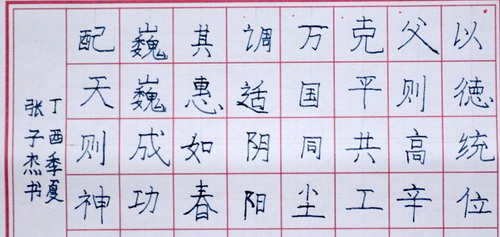 以德统位
父则高辛
克平共工
万国同尘
调适阴阳
其惠如春
巍巍成功
配天则神
丁酉季夏
张子杰书